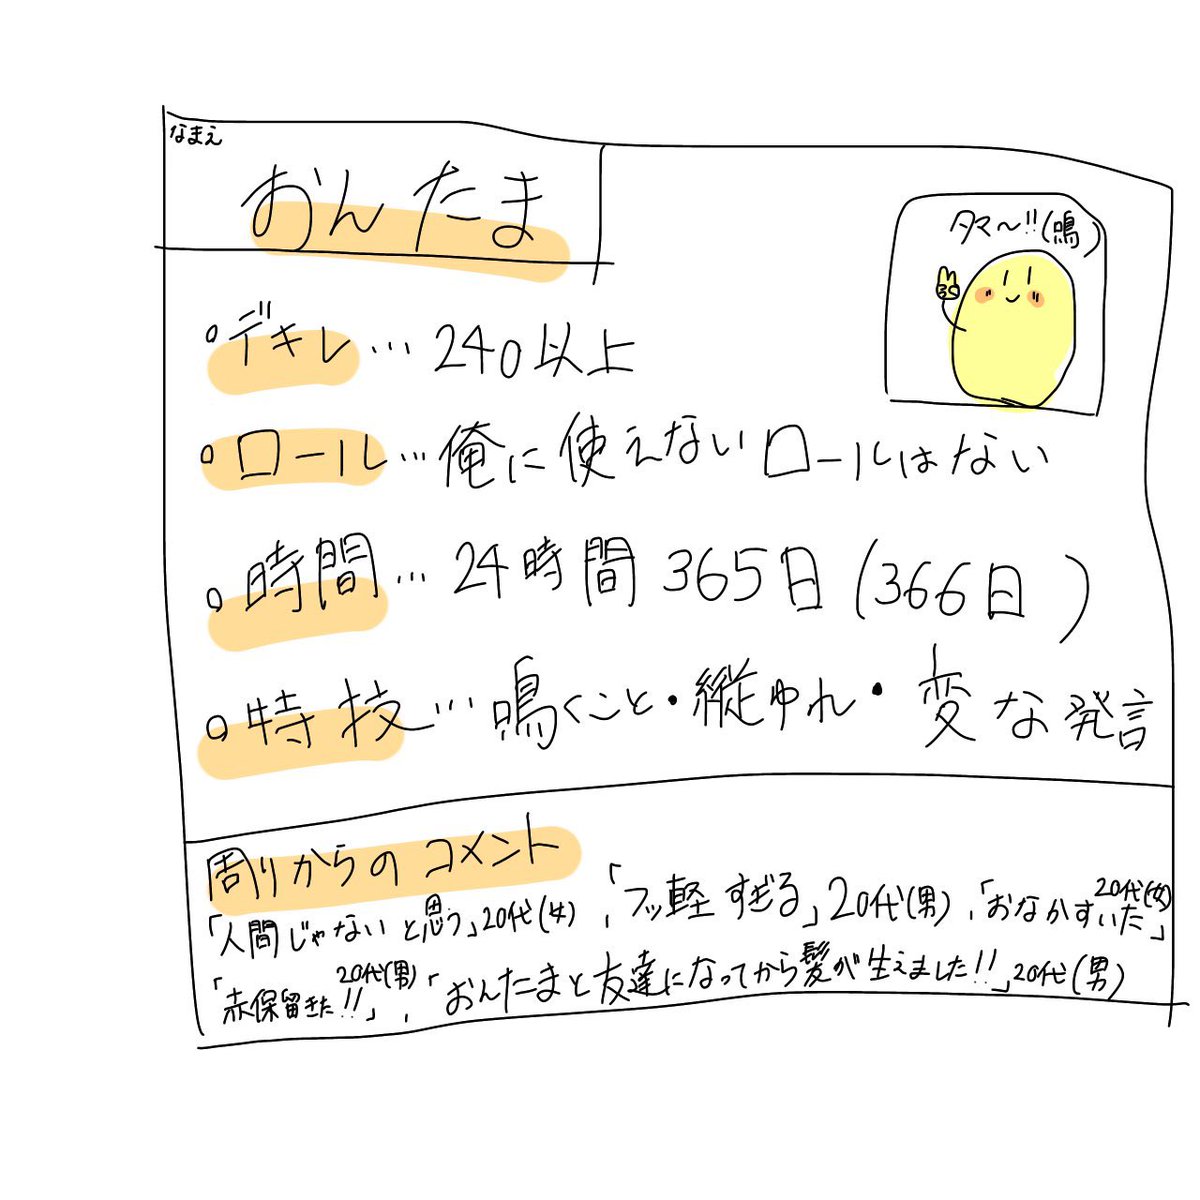 なまえ
おんたま
タマ〜!!(鳴)
デキレ…240以上
ロール…俺に使えないロールはない
時間…24時間365日(366日)
特技…鳴くこと・縦ゆれ・変な発言
周りからのコメント
「人間じゃないと思う」20代(女),「フッ軽すぎる」20代(男),「おなかすいた」20代(女)
「赤保留きた!!」20代(男),「おんたまと友達になってから髪が生えました!!」20代(男)